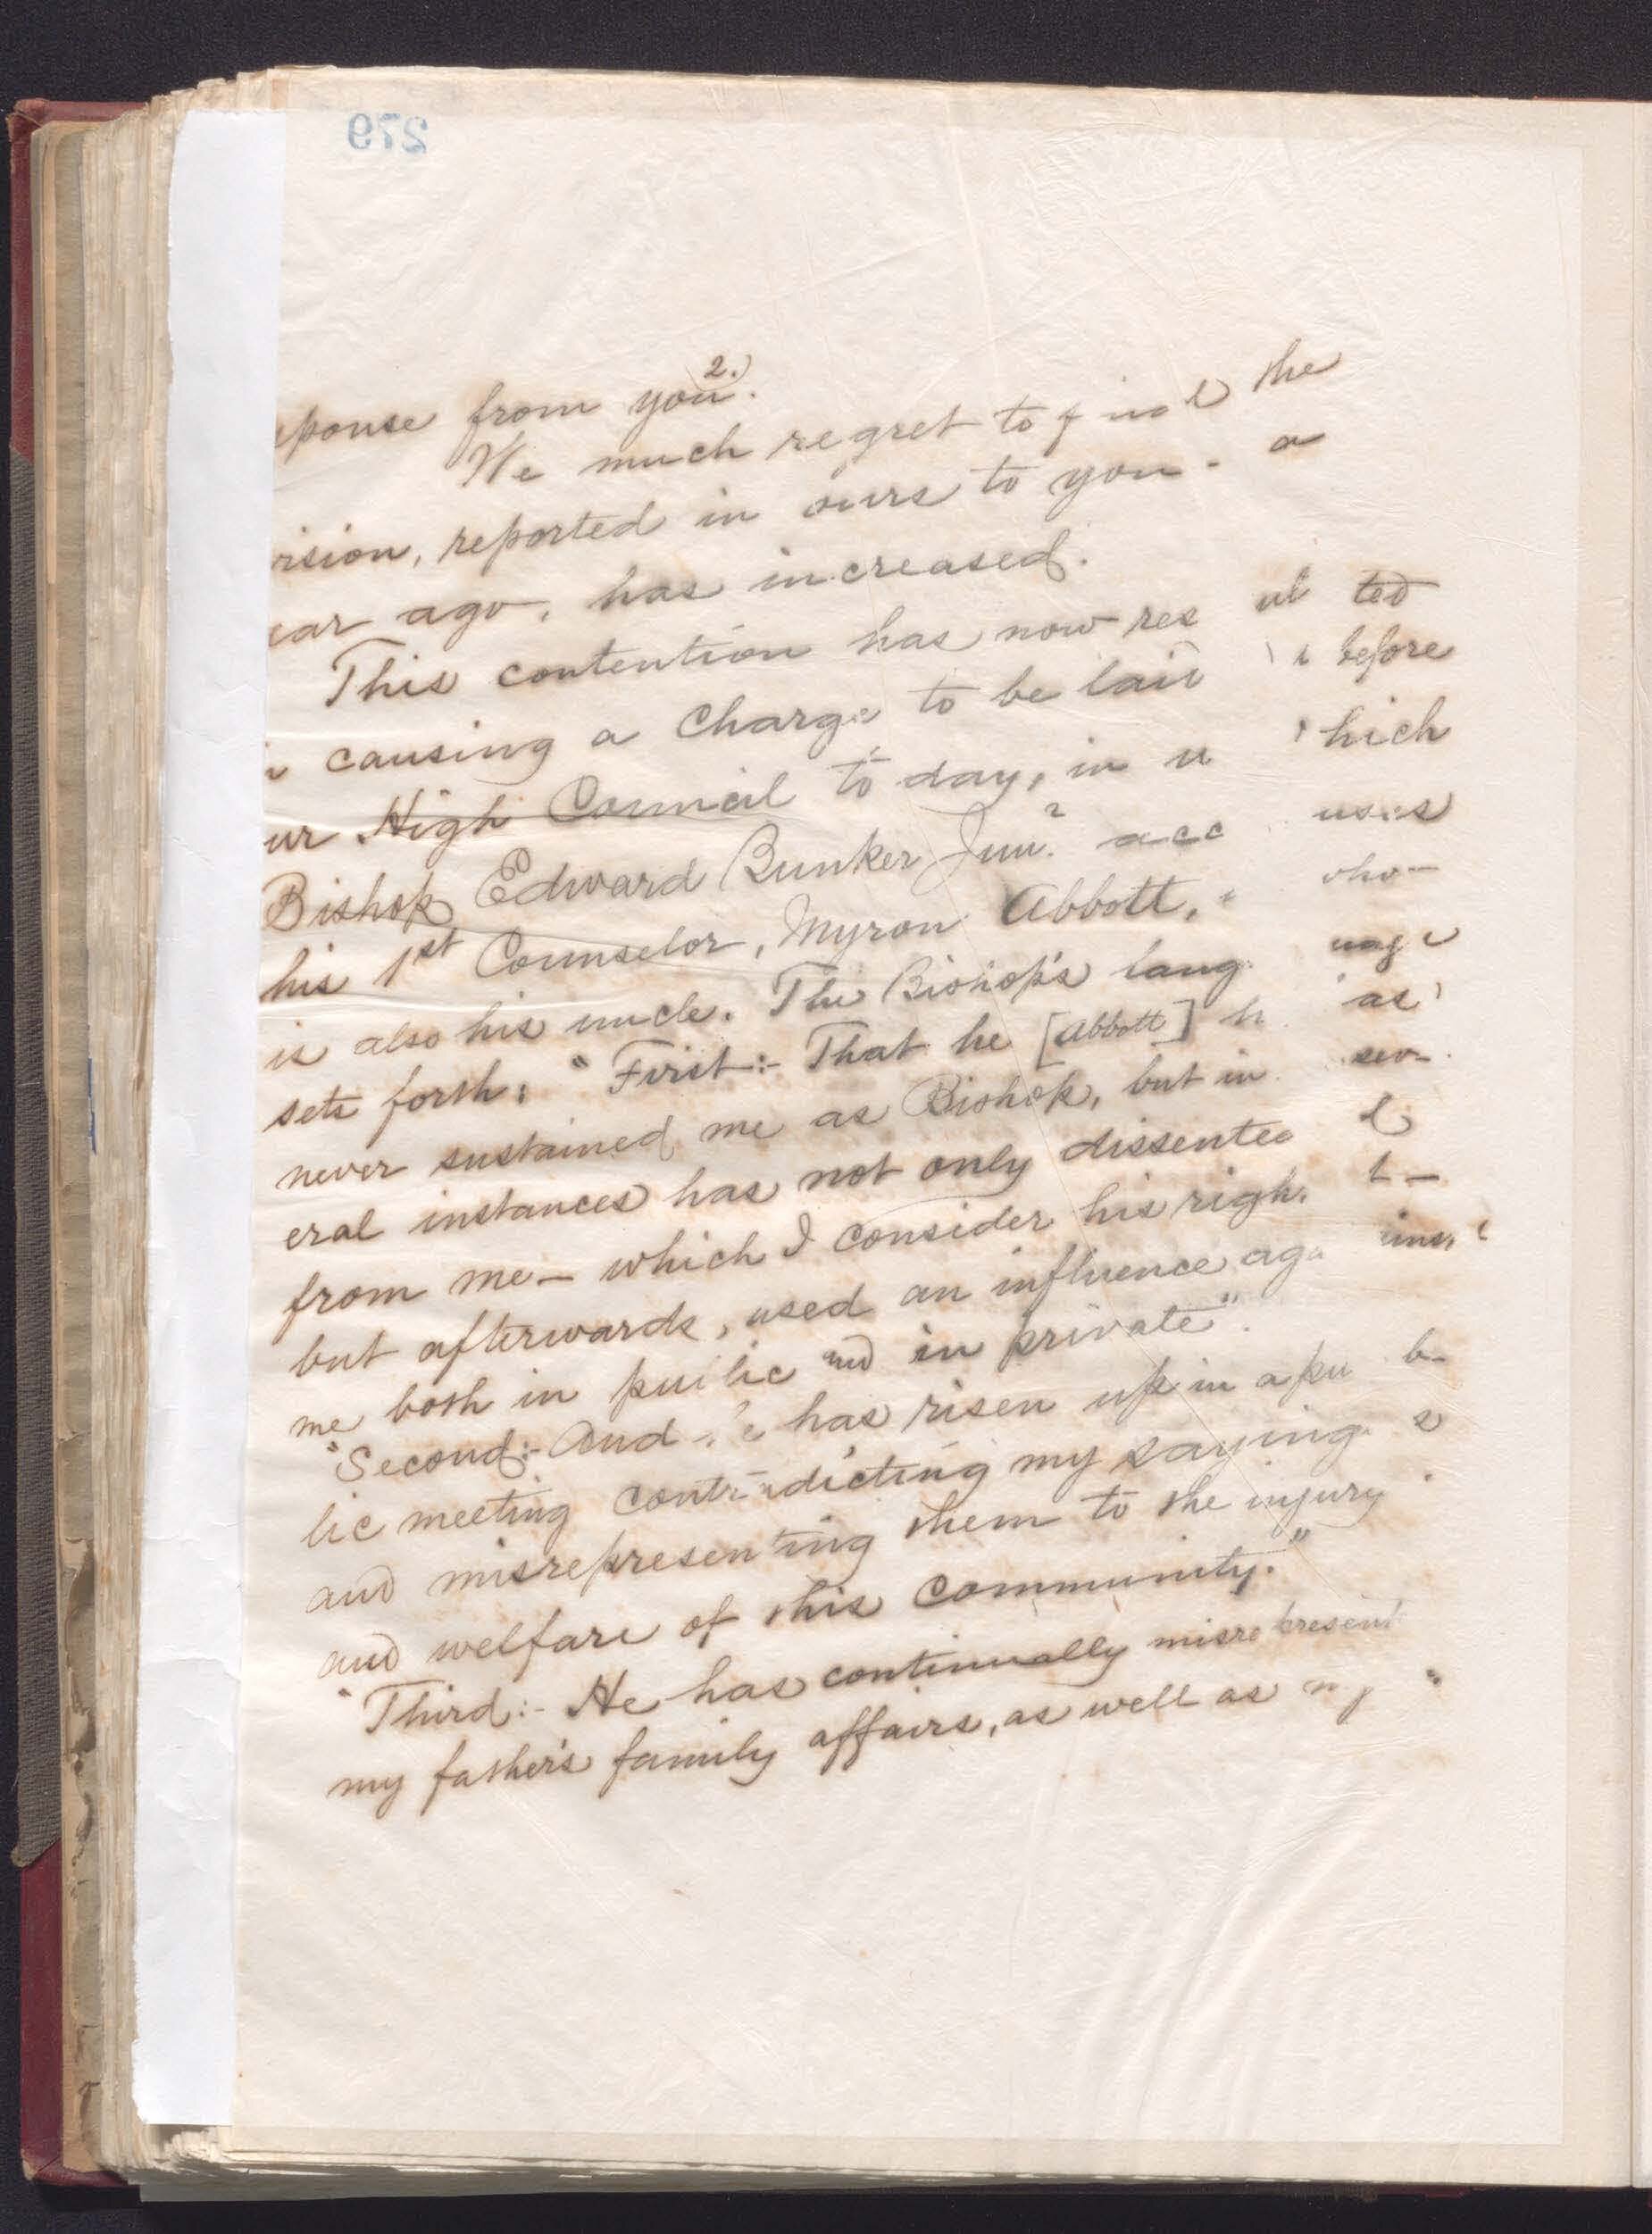 279
2.
sponse from you.
We much regret to find the
vision, reported in ours to you a
ear ago, has increased.
This contention has now resulted
in causing a Charge to be laid before
ur High Council to day, in which
Bishop Edward Bunker Junr accuses
his 1st Counselor, Myron Abbott, who
is also his uncle. The Bishop's language
sets forth: "First:- That he [Abbott] has
never sustained me as Bishop, but in sev-
eral instances has not only dissented
from me — which I consider his right —
but afterwards, used an influence against
me both in public and in private".
"Second:- And he has risen up in a pub-
lic meeting contradicting my sayings
and misrepresenting them to the injury
and welfare of this community."
"Third:- He has continually misrepresent
my father's family affairs, as well as my